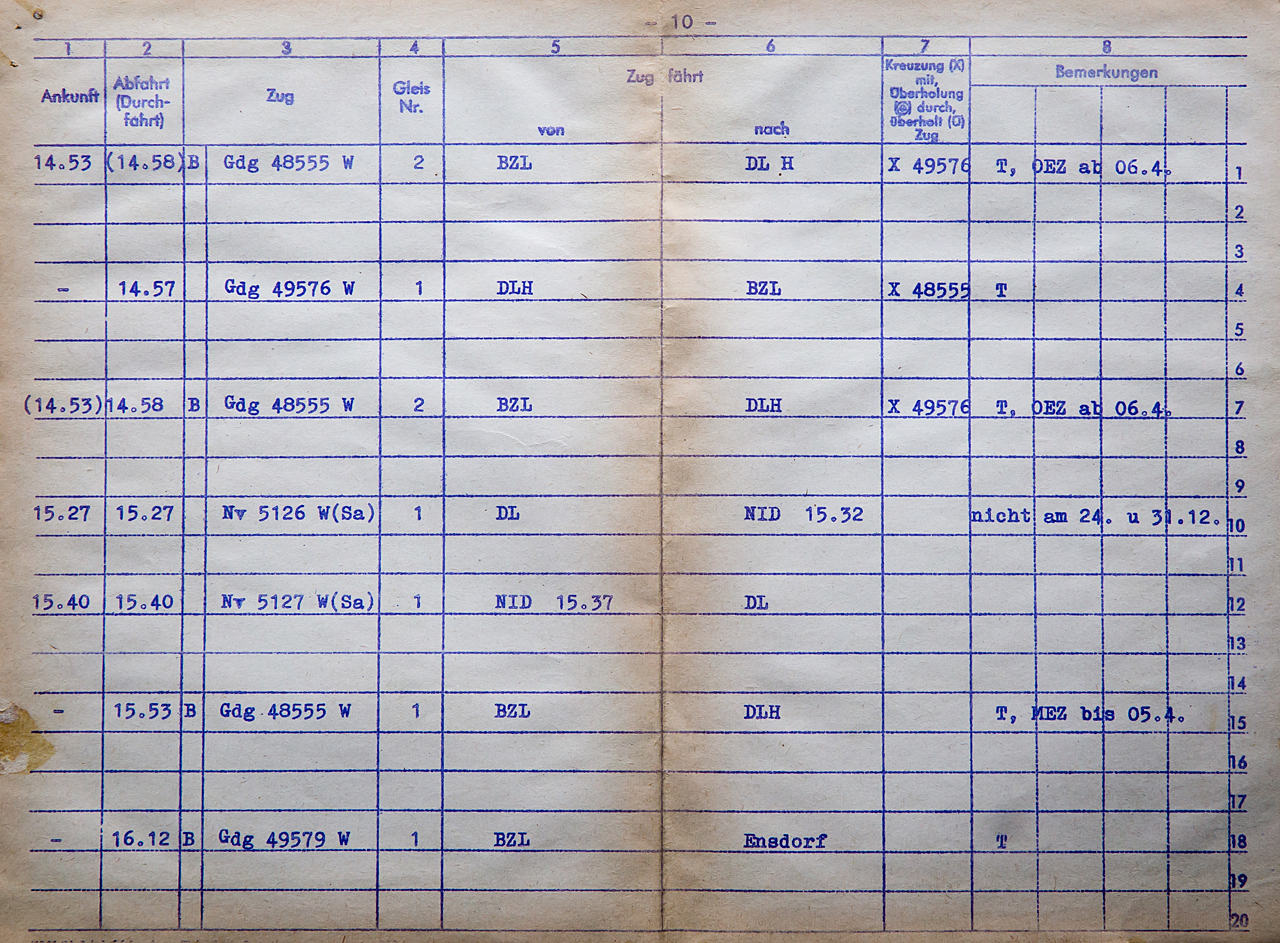 - 10 -
1 2 3 4 5 6 7 8
Ankunft Abfahrt (Durch-fahrt) Zug Gleis Nr. Zug fährt von nach Kreuzung (X) mit, Überholung durch, überholt (Ü) Zug Bemerkungen
14.53 (14.58) B Gdg 48555 W 2 BZL DL H X 49576 T, OEZ ab 06.4. 1
2
3
- 14.57 Gdg 49576 W 1 DLH BZL X 48555 T 4
5
6
(14.53) 14.58 B Gdg 48555 W 2 BZL DLH X 49576 T, OEZ ab 06.4. 7
8
9
15.27 15.27 Nv 5126 W(Sa) 1 DL NID 15.32 nicht am 24. u 31.12. 10
11
15.40 15.40 Nv 5127 W(Sa) 1 NID 15.37 DL 12
13
14
- 15.53 B Gdg 48555 W 1 BZL DLH T, MEZ bis 05.4. 15
16
17
- 16.12 B Gdg 49579 W 1 BZL Ensdorf T 18
19
20